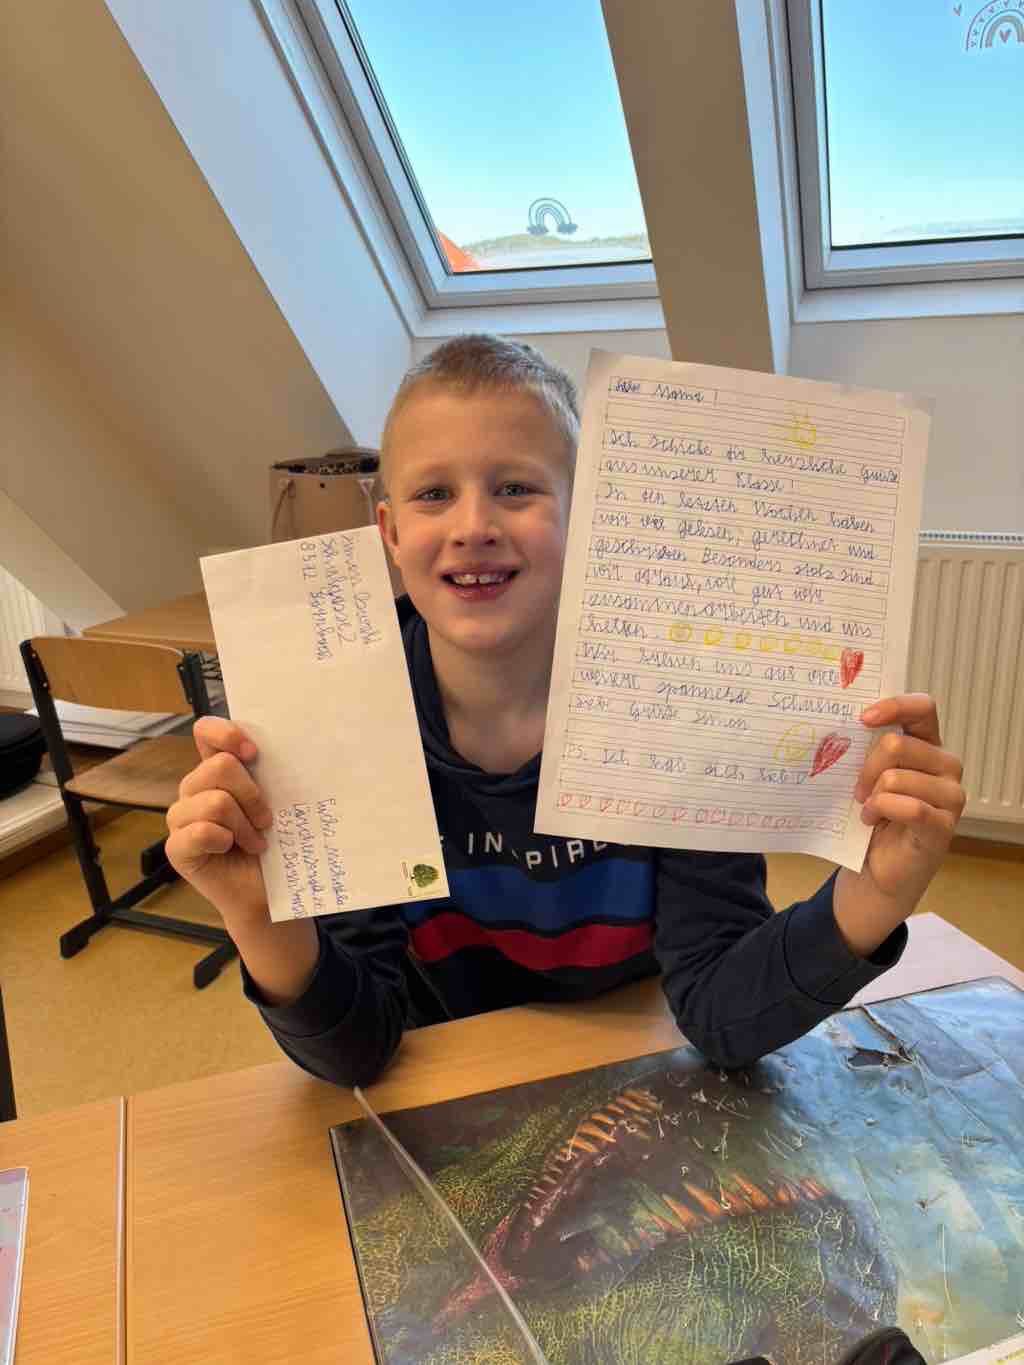 Liebe Mama!
Ich schicke dir herzliche Grüße
aus unserer Klasse!
In den letzten Wochen haben
wir viel gelesen, gerechnet und
geschrieben. Besonders stolz sind
wir darauf, wie gut wir
zusammenarbeiten und uns
helfen.
Wir freuen uns auf viele
weitere spannende Schultage!
Liebe Grüße Simon
PS. Ich hab dich lieb
Simon
Schulgasse 2
8572
Fuchs
8572
INSPIRE